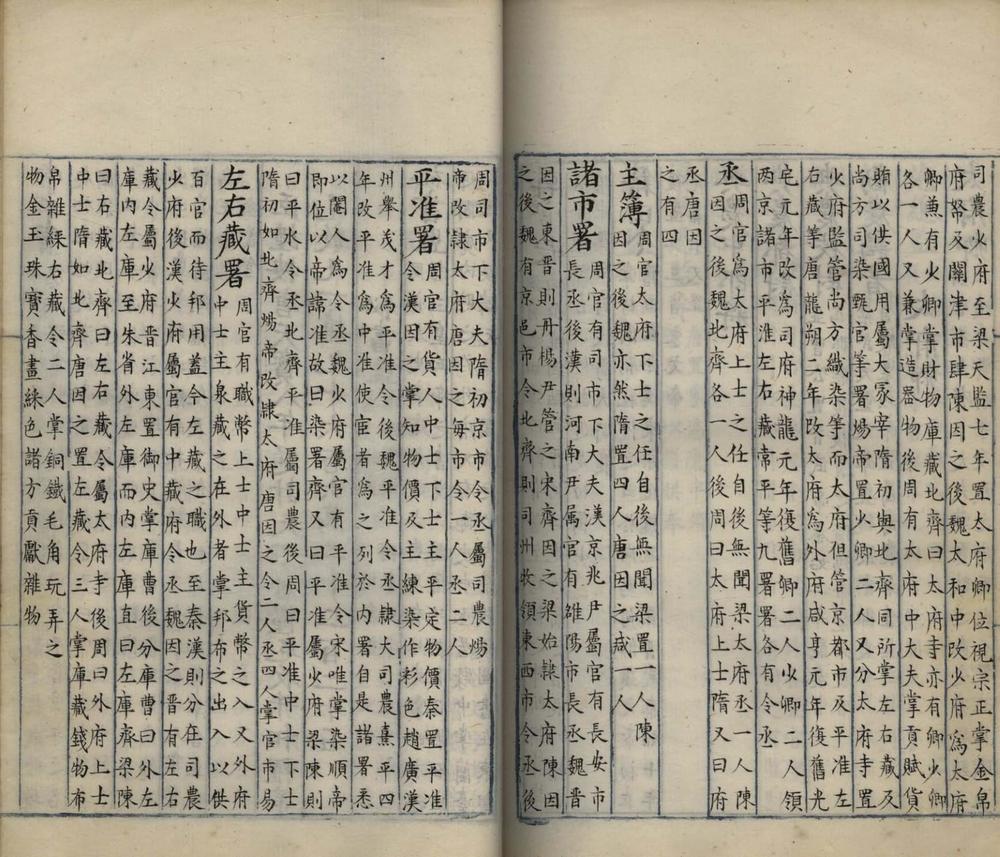 司農少府至梁天監七年置太府卿位視宗正掌金帛
府帑及關津市肆陳因之後魏太和中改少府爲太府
卿兼有少卿掌財物庫藏北齊曰太府寺亦有卿少卿
各一人又兼掌造器物後周有太府中大夫掌貢賦貨
賄以供國用屬大冢宰隋初與北齊同所掌左右藏及
尚方司染甄官等署煬帝置少卿二人又分太府寺置
少府監管尚方織染等而太府但管京都市及平准左
右藏等唐龍朔二年改太府爲外府咸亨元年復舊光
宅元年改爲司府神龍元年復舊卿二人少卿二人領
两京諸市平淮左右藏常平等九署署各有令丞
丞周官爲太府上士之任自後無聞梁太府丞一人陳
因之後魏北齊各一人後周曰太府上士隋又曰府
丞唐因
之有四
主簿周官太府下士之任自後無聞梁置一人陳
因之後魏亦然隋置四人唐因之咸一人
諸市署周官有司市下大夫漢京兆尹屬官有長安市
長丞後漢則河南尹属官有雒陽市長丞魏晋
因之東晋則丹楊尹管之宋齊因之梁始隷太府陳因
之後魏有京邑市令北齊則司州牧領東西市令丞後
周司市下大夫隋初京市令丞屬司農煬
帝改隷太府唐因之每市令一人丞二人
平准署周官有貨人中士下士主平定物價秦置平准
令漢因之掌知物價及主練染作彩色趙廣漢
州舉茂才爲平准令後魏平准令丞隷大司農熹平四
年改平准爲中准使宦者爲之列於內署自是諸署悉
以閹人爲令丞魏少府屬官有平准令宋唯掌染順帝
即位以帝諱准故曰染署齊又曰平准屬少府梁陳則
曰平水令丞北齊平准屬司農後周曰平准中士下士
隋初如北齊煬帝改隷太府唐因之令二人丞四人掌官市易
左右藏署周官有職幣上士中士主貨幣之入又外府
中士主泉藏之在外者掌邦布之出入以供
百官而待邦用蓋今左藏之職也至秦漢則分在司農
少府後漢少府屬官有中藏府令丞魏因之晋有左右
藏令屬少府晋江東置御史掌庫曹後分庫曹曰外左
庫內左庫至朱省外左庫而內左庫直曰左庫齊梁陳
曰右藏北齊曰左右藏令屬太府寺後周曰外府上士
中士隋如北齊唐因之置左藏令三人掌庫藏錢物布
帛雜綵右藏令二人掌銅鐵毛角玩弄之
物金玉珠寶香畫綵色諸方貢獻雜物